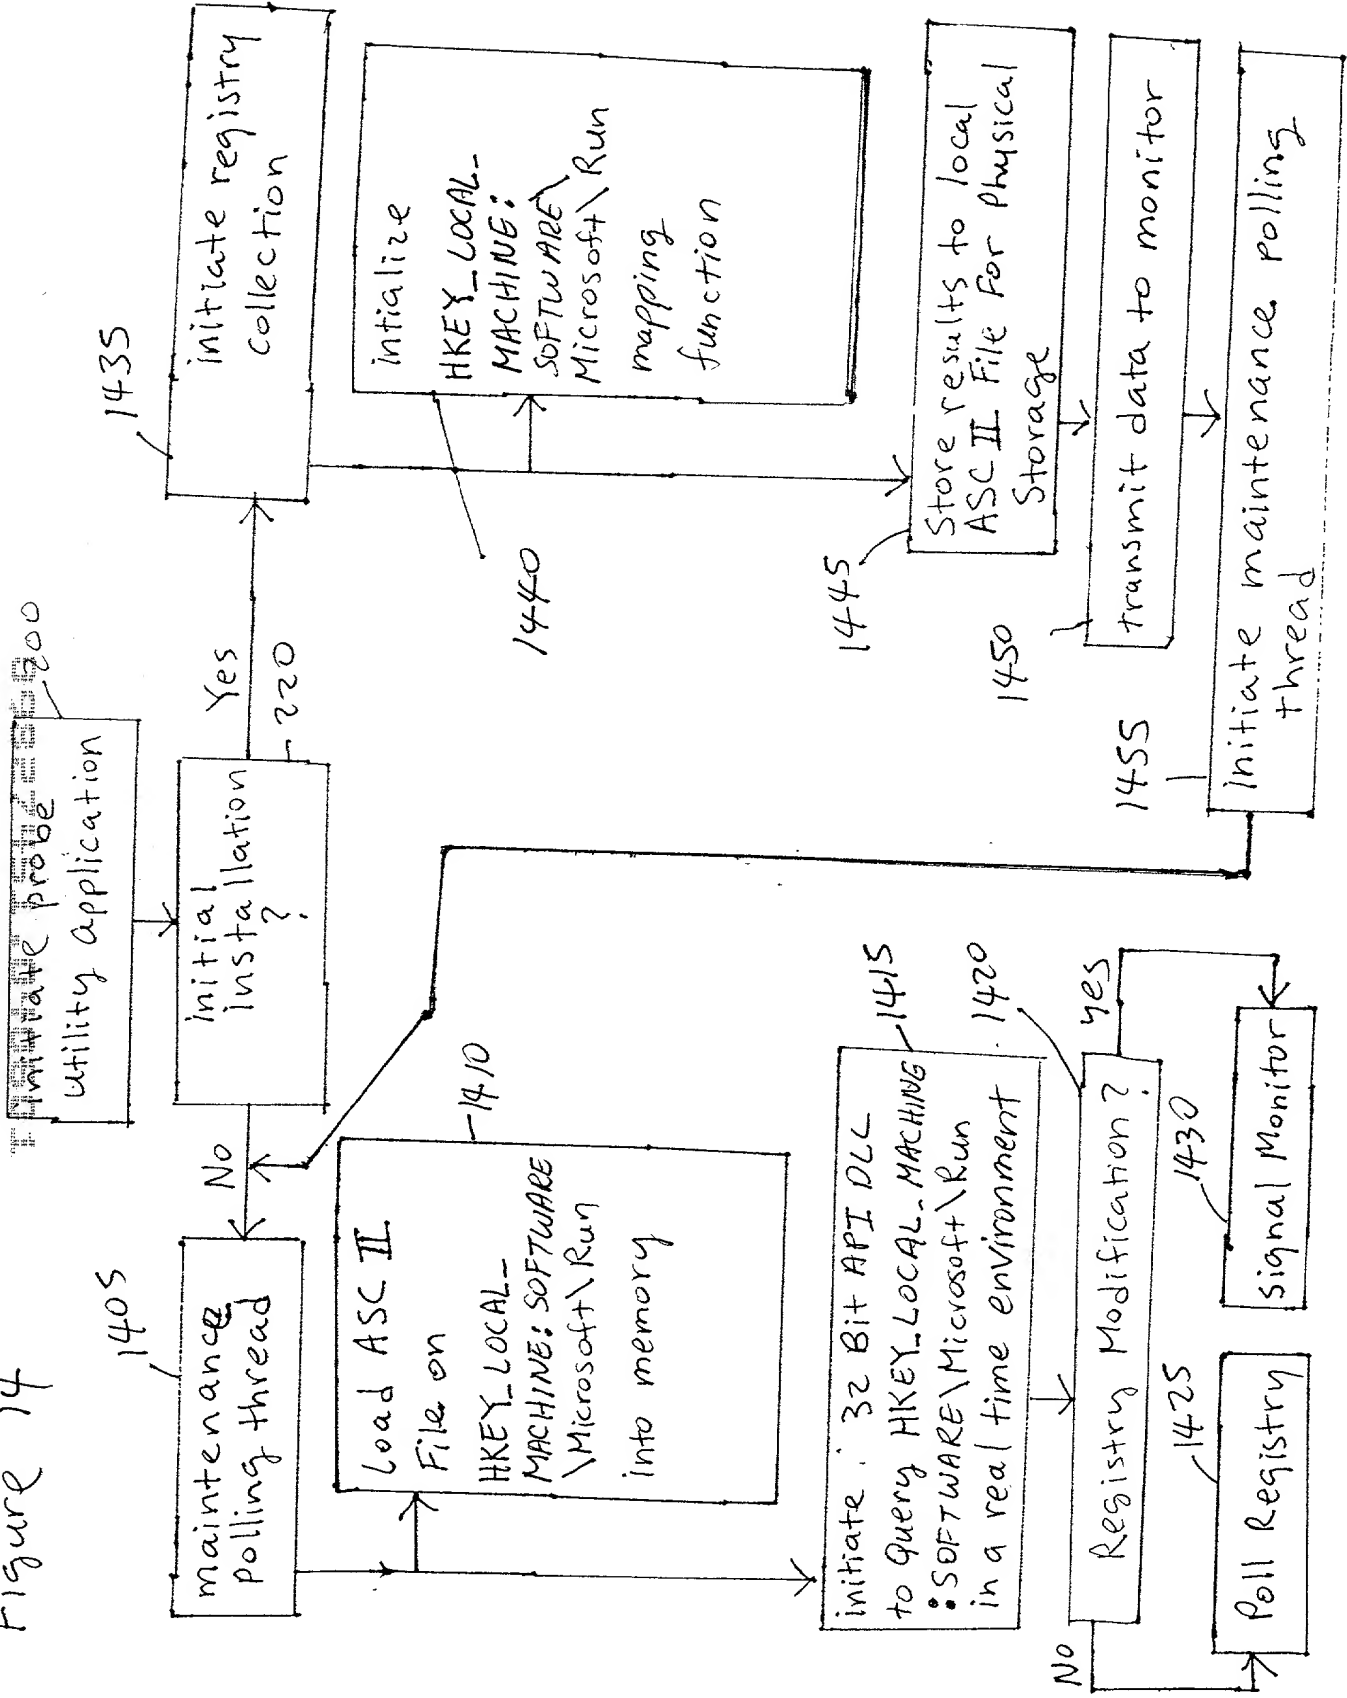 Figure 14
Initiate probe
utility application
200
initial
installation
?
220
No
Yes
1405
maintenance
polling thread
1410
Load ASC II
File on
HKEY_LOCAL_
MACHINE: SOFTWARE
\Microsoft\Run
into memory
1415
initiate 32 Bit API DLL
to Query HKEY_LOCAL_MACHINE
:SOFTWARE\Microsoft\Run
in a real time environment
1420
Registry Modification?
No
yes
1425
Poll Registry
1430
Signal Monitor
1435
initiate registry
collection
1440
intialize
HKEY_LOCAL_
MACHINE:
SOFTWARE\
Microsoft\Run
mapping
function
1445
Store results to local
ASC II File For Physical
Storage
1450
transmit data to monitor
1455
Initiate maintenance polling
thread